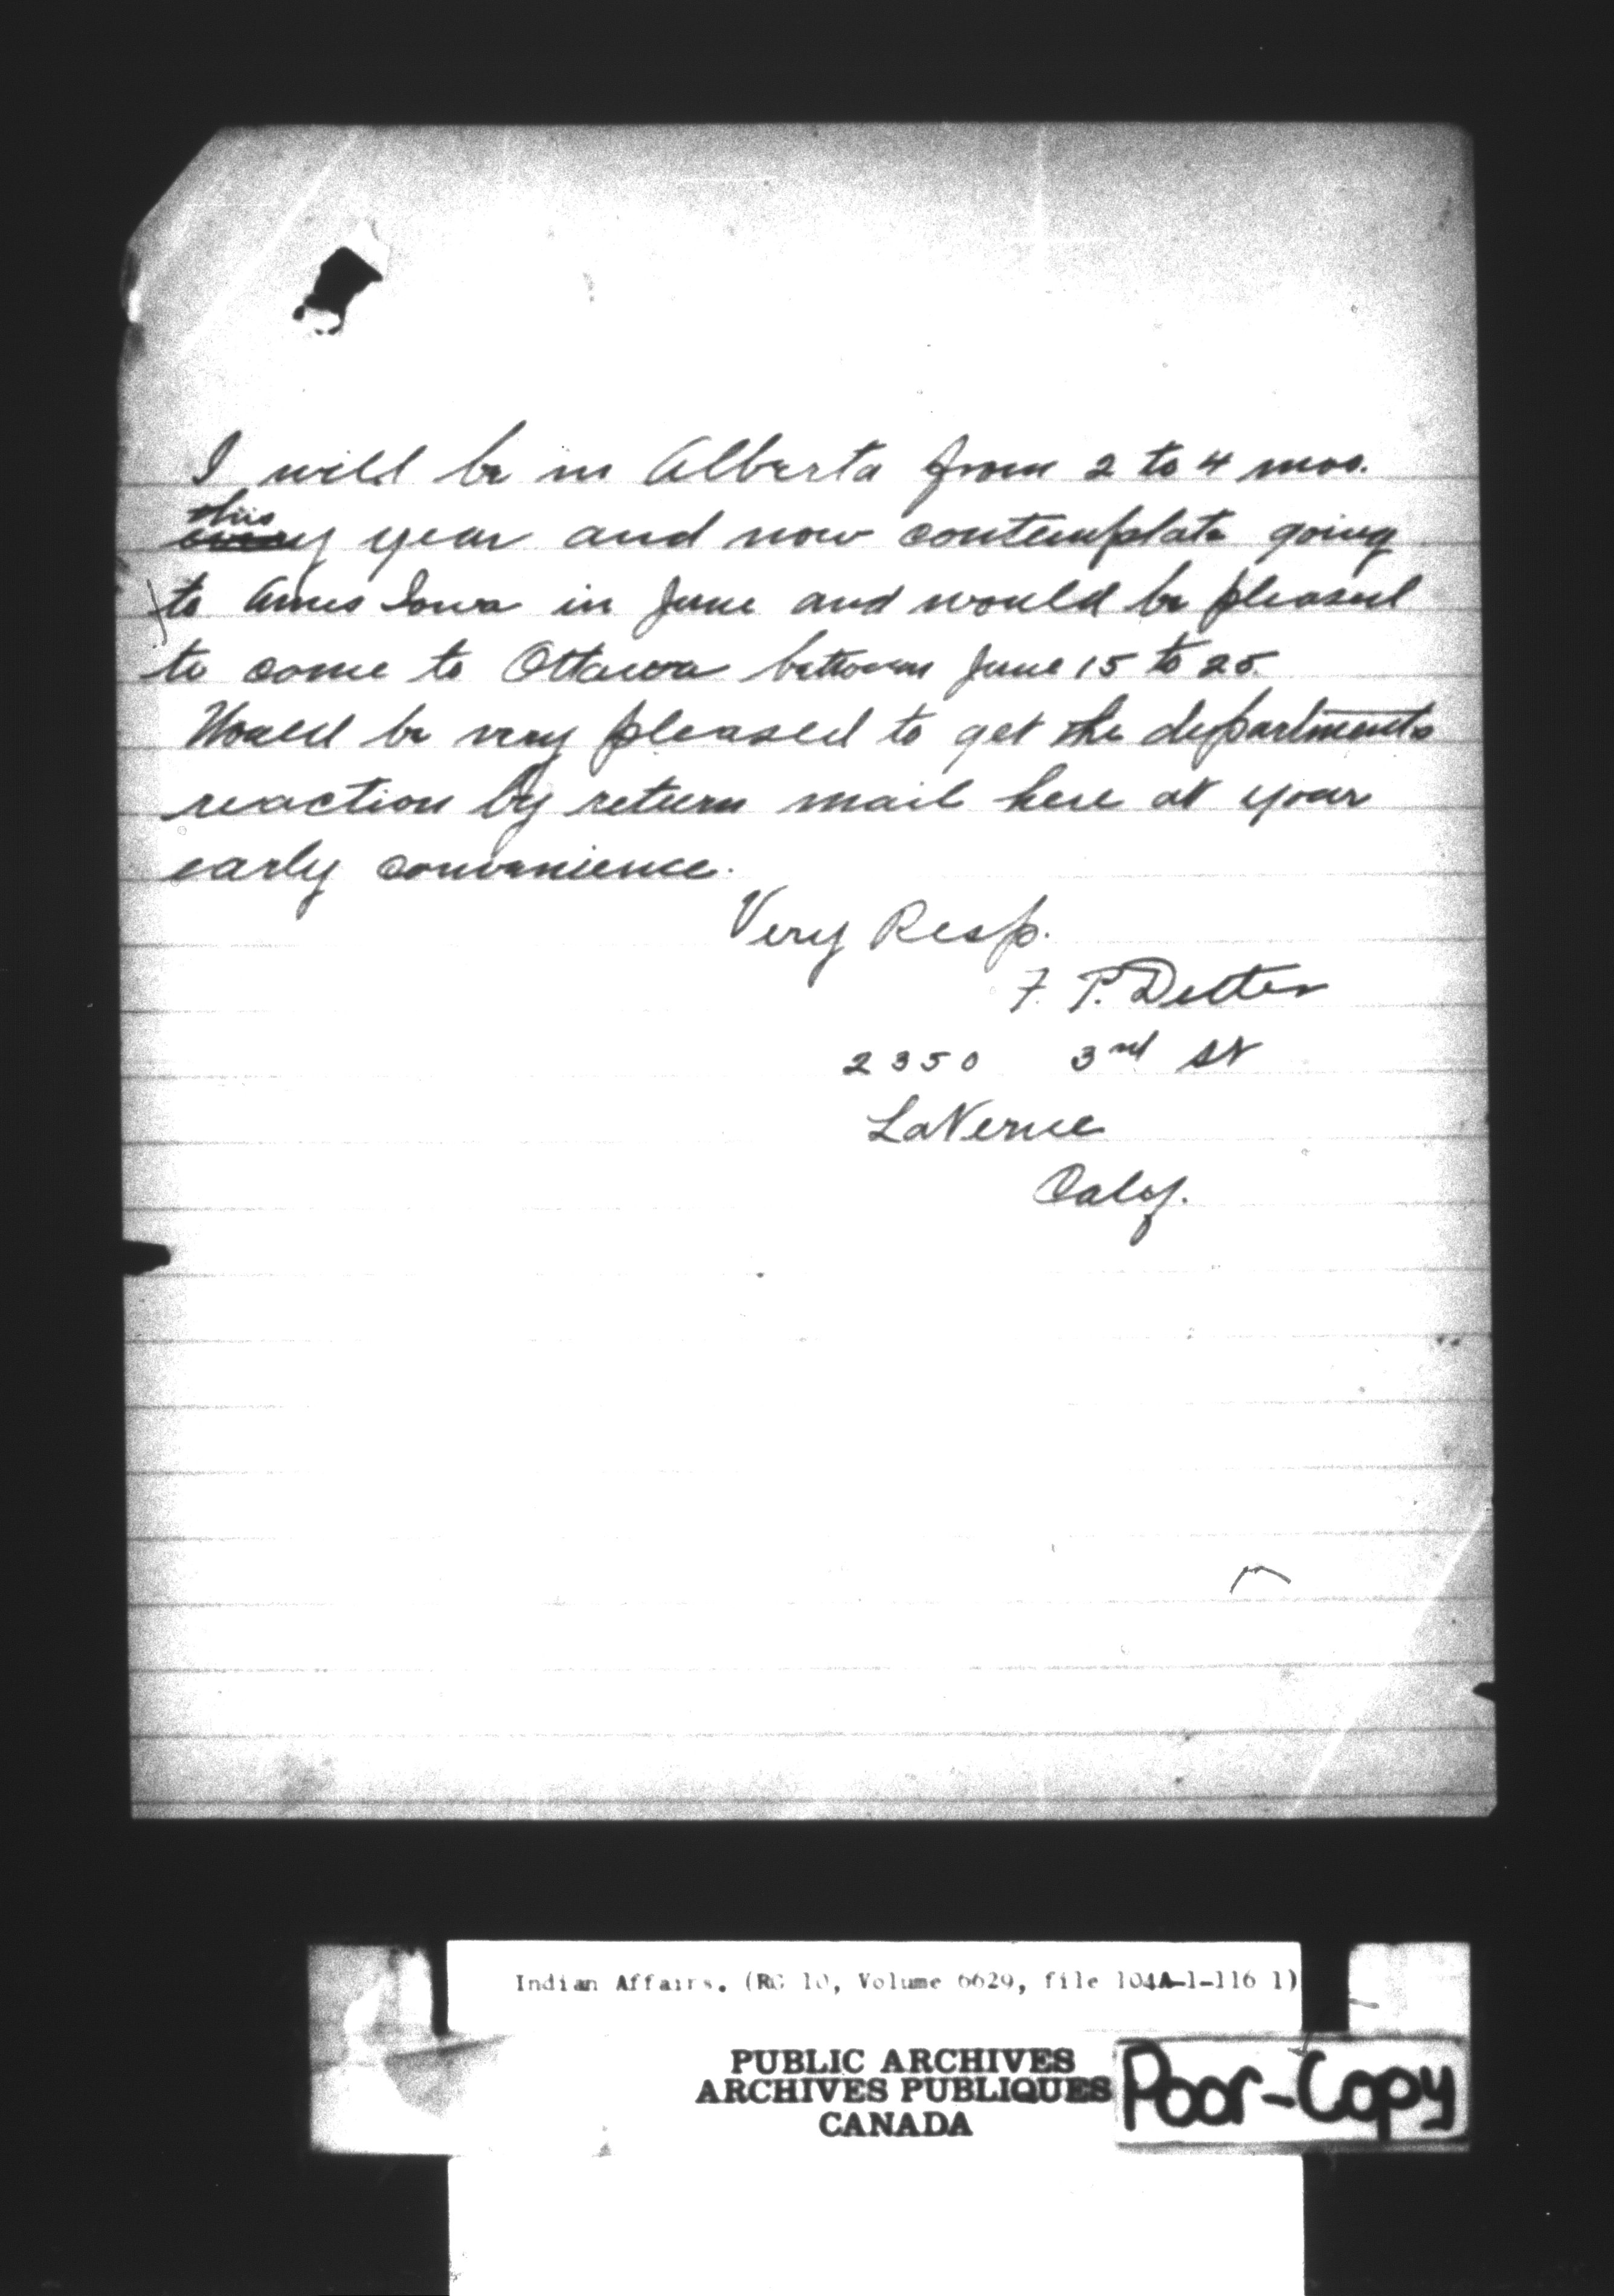 I will be in Alberta from 2 to 4 mos.
this
every year and now contemplate going
to Ames Iowa in June and would be pleased
to come to Ottawa between June 15 to 25.
Would be very pleased to get the departments
reaction by return mail here at your
early convenience.
Very Resp.
F. P. Detter
2350 3rd St
LaVerne
Calif.
Indian Affairs. (RG 10, Volume 6629, file 104A-1-116 1)
PUBLIC ARCHIVES
ARCHIVES PUBLIQUES
CANADA
Poor-Copy